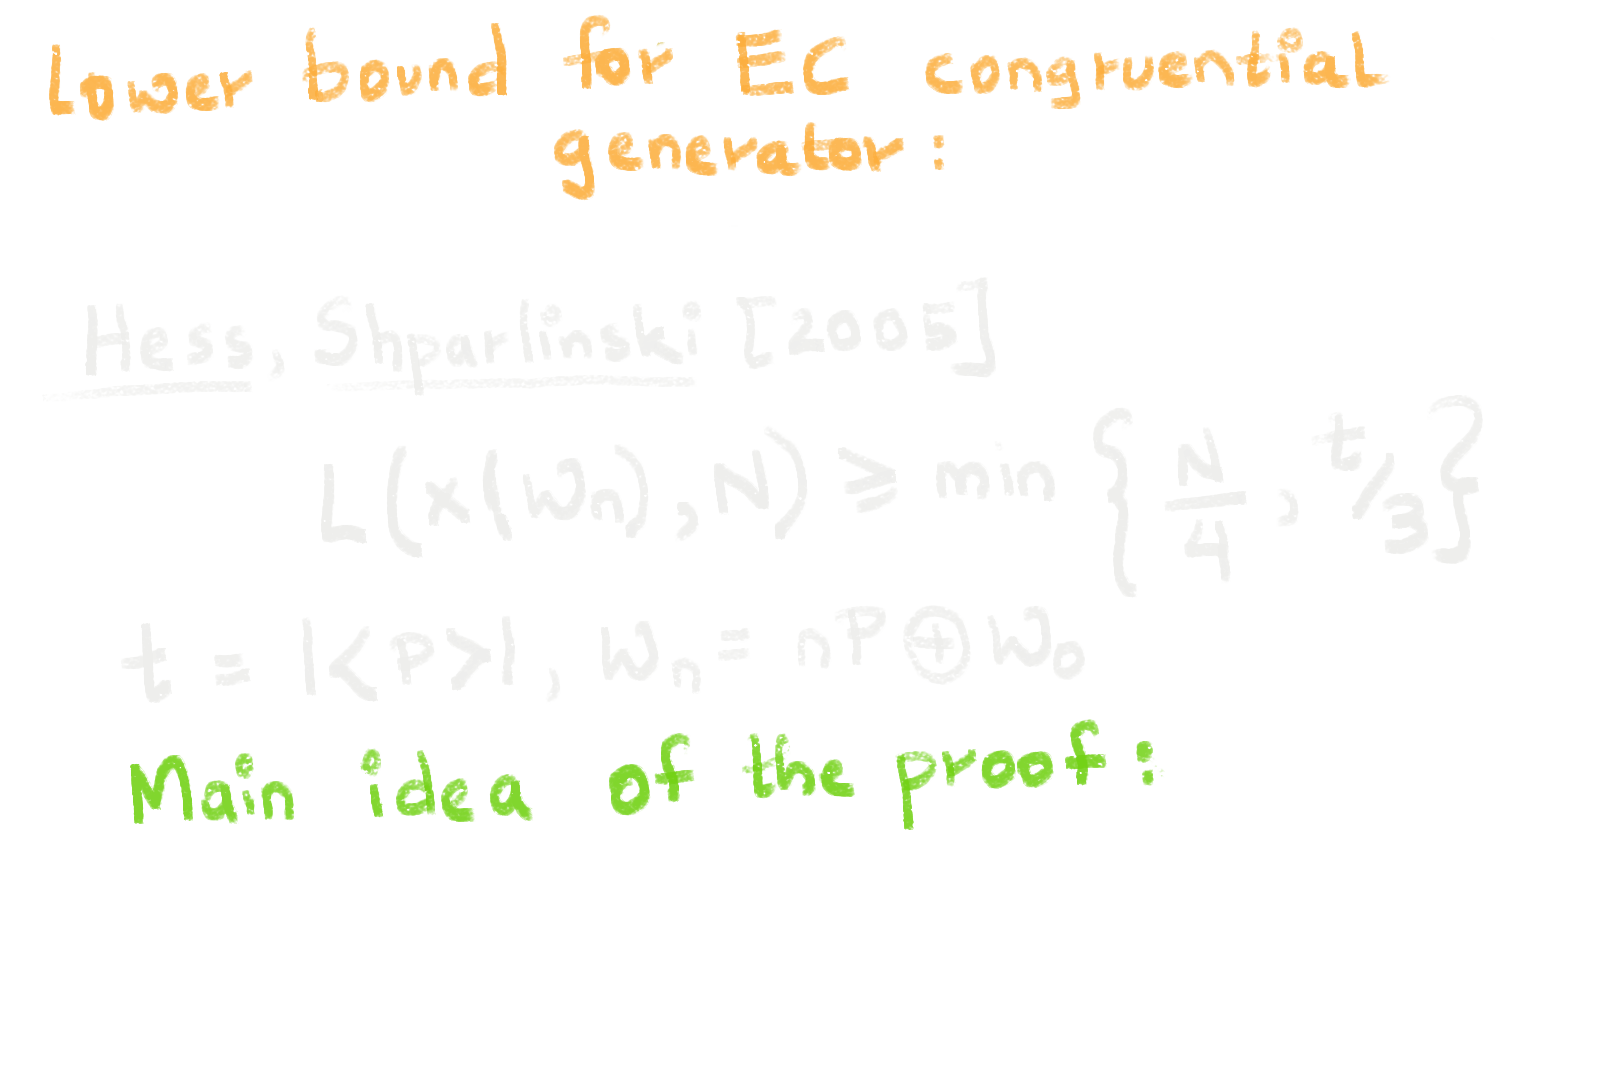 Lower bound for EC congruential
generator:
Hess, Shparlinski [2005]
L(x(Wn), N) ≥ min { N/4, t/3 }
t = |<P>|, Wn = nP ⊕ W0
Main idea of the proof: